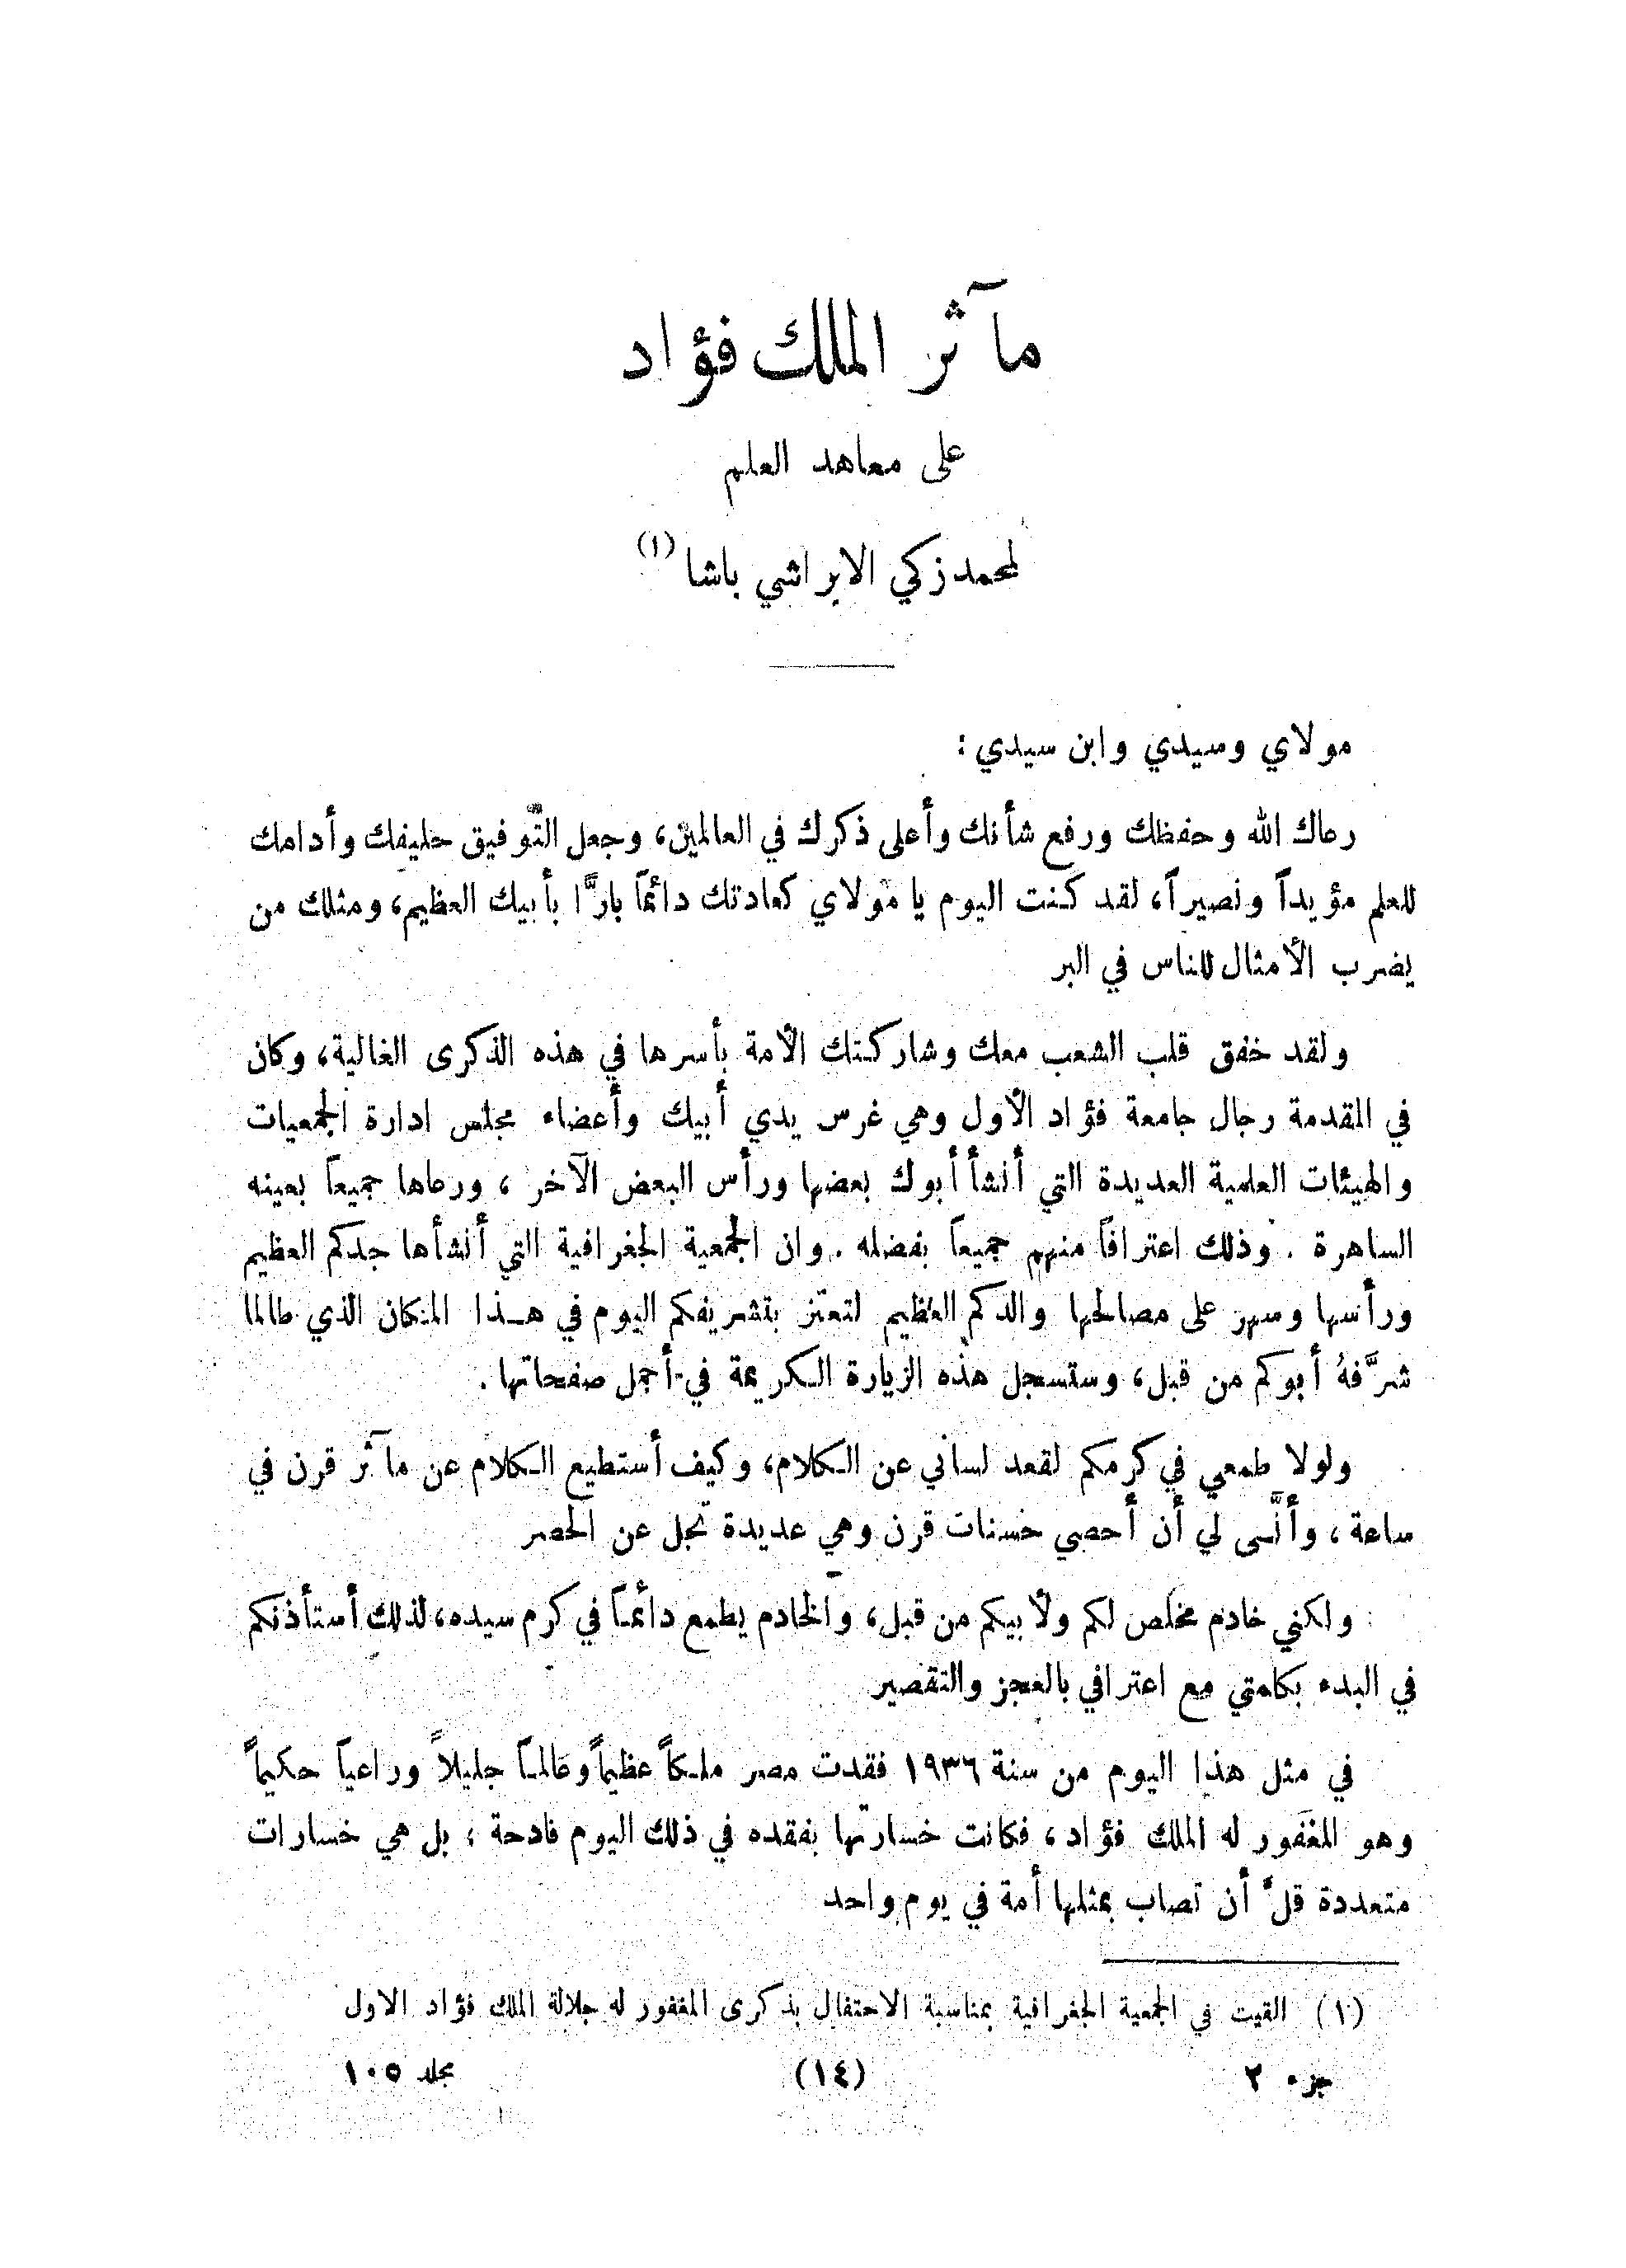 مآثر الملك فؤاد
على معاهد العلم
لمحمد زكي الابراشي باشا (١)
مولاي وسيدي وابن سيدي :
رعاك الله وحفظك ورفع شأنك وأعلى ذكرك في العالمين، وجعل التوفيق حليفك وأدامك
للعلم مؤيداً ونصيراً، لقد كنت اليوم يا مولاي كعادتك دائماً بارًّا بأبيك العظيم، ومثلك من
يضرب الأمثال للناس في البر
ولقد خفق قلب الشعب معك وشاركتك الأمة بأسرها في هذه الذكرى الغالية، وكان
في المقدمة رجال جامعة فؤاد الأول وهي غرس يدي أبيك وأعضاء مجلس ادارة الجمعيات
والهيئات العلمية العديدة التي أنشأ أبوك بعضها ورأس البعض الآخر ، ورعاها جميعاً بعينه
الساهرة . وذلك اعترافاً منهم جميعاً بفضله . وان الجمعية الجغرافية التي أنشأها جدكم العظيم
ورأسها وسهر على مصالحها والدكم العظيم لتعتز بتشريفكم اليوم في هذا المكان الذي طالما
شرَّفهُ أبوكم من قبل، وستسجل هذه الزيارة الكريمة في أجمل صفحاتها .
ولولا طمعي في كرمكم لقعد لساني عن الكلام، وكيف أستطيع الكلام عن مآثر قرن في
ساعة ، وأنَّى لي أن أحصي حسنات قرن وهي عديدة تجل عن الحصر
ولكني خادم مخلص لكم ولأبيكم من قبل، والخادم يطمع دائماً في كرم سيده، لذلك أستأذنكم
في البدء بكلمتي مع اعترافي بالعجز والتقصير
في مثل هذا اليوم من سنة ١٩٣٦ فقدت مصر ملكاً عظيماً وعالماً جليلاً وراعياً حكيماً
وهو المغفور له الملك فؤاد ، فكانت خسارتها بفقده في ذلك اليوم فادحة ، بل هي خسارات
متعددة قلَّ أن تصاب بمثلها أمة في يوم واحد
(١) القيت في الجمعية الجغرافية بمناسبة الاحتفال بذكرى المغفور له جلالة الملك فؤاد الاول
جزء ٢ (١٤) مجلد ١٠٥